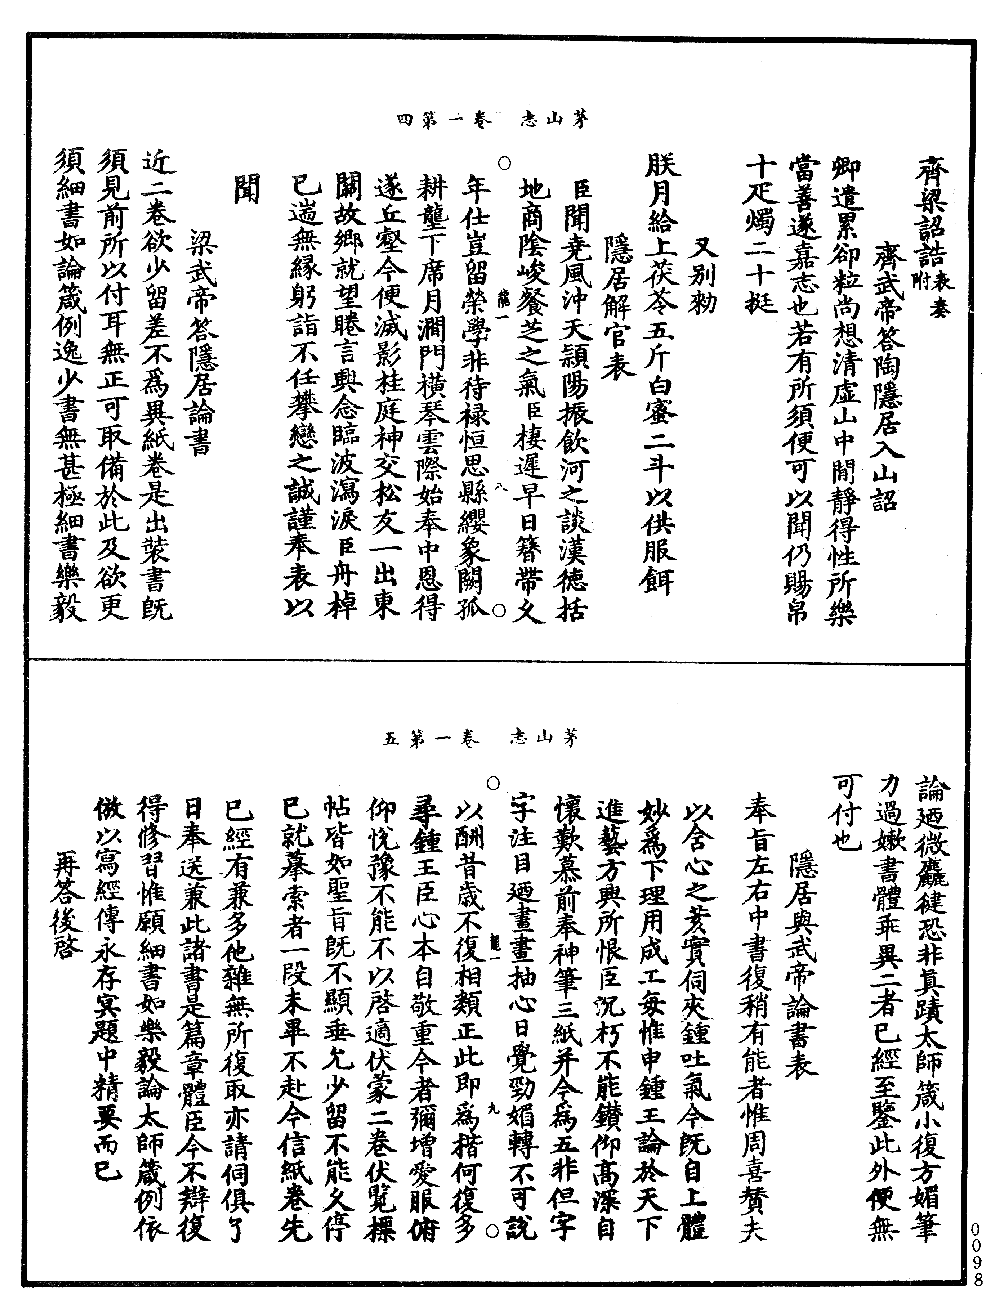 茅山志　卷一第四
齊梁詔誥表奏附
齊武帝答陶隱居入山詔
卿遣累卻粒尚想清虛山中閒靜得性所樂
當善遂嘉志也若有所須便可以聞仍賜帛
十疋燭二十挺
又别勑
朕月給上茯苓五斤白蜜二斗以供服餌
隱居解官表
臣聞堯風沖天頴陽振飲河之談漢德括
地商陰峻餐芝之氣臣棲遲早日簪帶久
龍一
八
年仕豈留榮學非待禄恒思縣纓象闕孤
耕壟下席月澗門橫琴雲際始奉中恩得
遂丘壑今便滅影桂庭神交松友一出東
關故鄉就望睠言興念臨波瀉淚臣舟棹
已遄無緣躬詣不任攀戀之誠謹奉表以
聞
梁武帝答隱居論書
近二卷欲少留差不爲異紙卷是出裝書旣
須見前所以付耳無正可取備於此及欲更
須細書如論箴例逸少書無甚極細書樂毅
茅山志　卷一第五
論廼微麤健恐非眞蹟太師箴小復方媚筆
力過嫰書體乖異二者已經至鑒此外便無
可付也
隱居與武帝論書表
奉旨左右中書復稍有能者惟周喜贊夫
以含心之荄實伺夾鍾吐氣今旣自上體
妙爲下理用成工每惟申鍾王論於天下
進藝方興所恨臣沉朽不能鑚仰高深自
懷歎慕前奉神筆三紙并今爲五非但字
字注目廼畫畫抽心日覺勁媚轉不可說
龍一
九
以酬昔歲不復相類正此即爲楷何復多
尋鍾王臣心本自敬重今者彌增愛服俯
仰悅豫不能不以啓適伏蒙二卷伏覽標
帖皆如聖旨旣不顯垂允少留不能久停
已就摹索者一段未畢不赴今信紙卷先
已經有兼多他雜無所復取亦請伺俱了
日奉送兼此諸書是篇章體臣今不辯復
得修習惟願細書如樂毅論太師箴例依
倣以寫經傳永存冥題中精要而已
再答後啓
0098